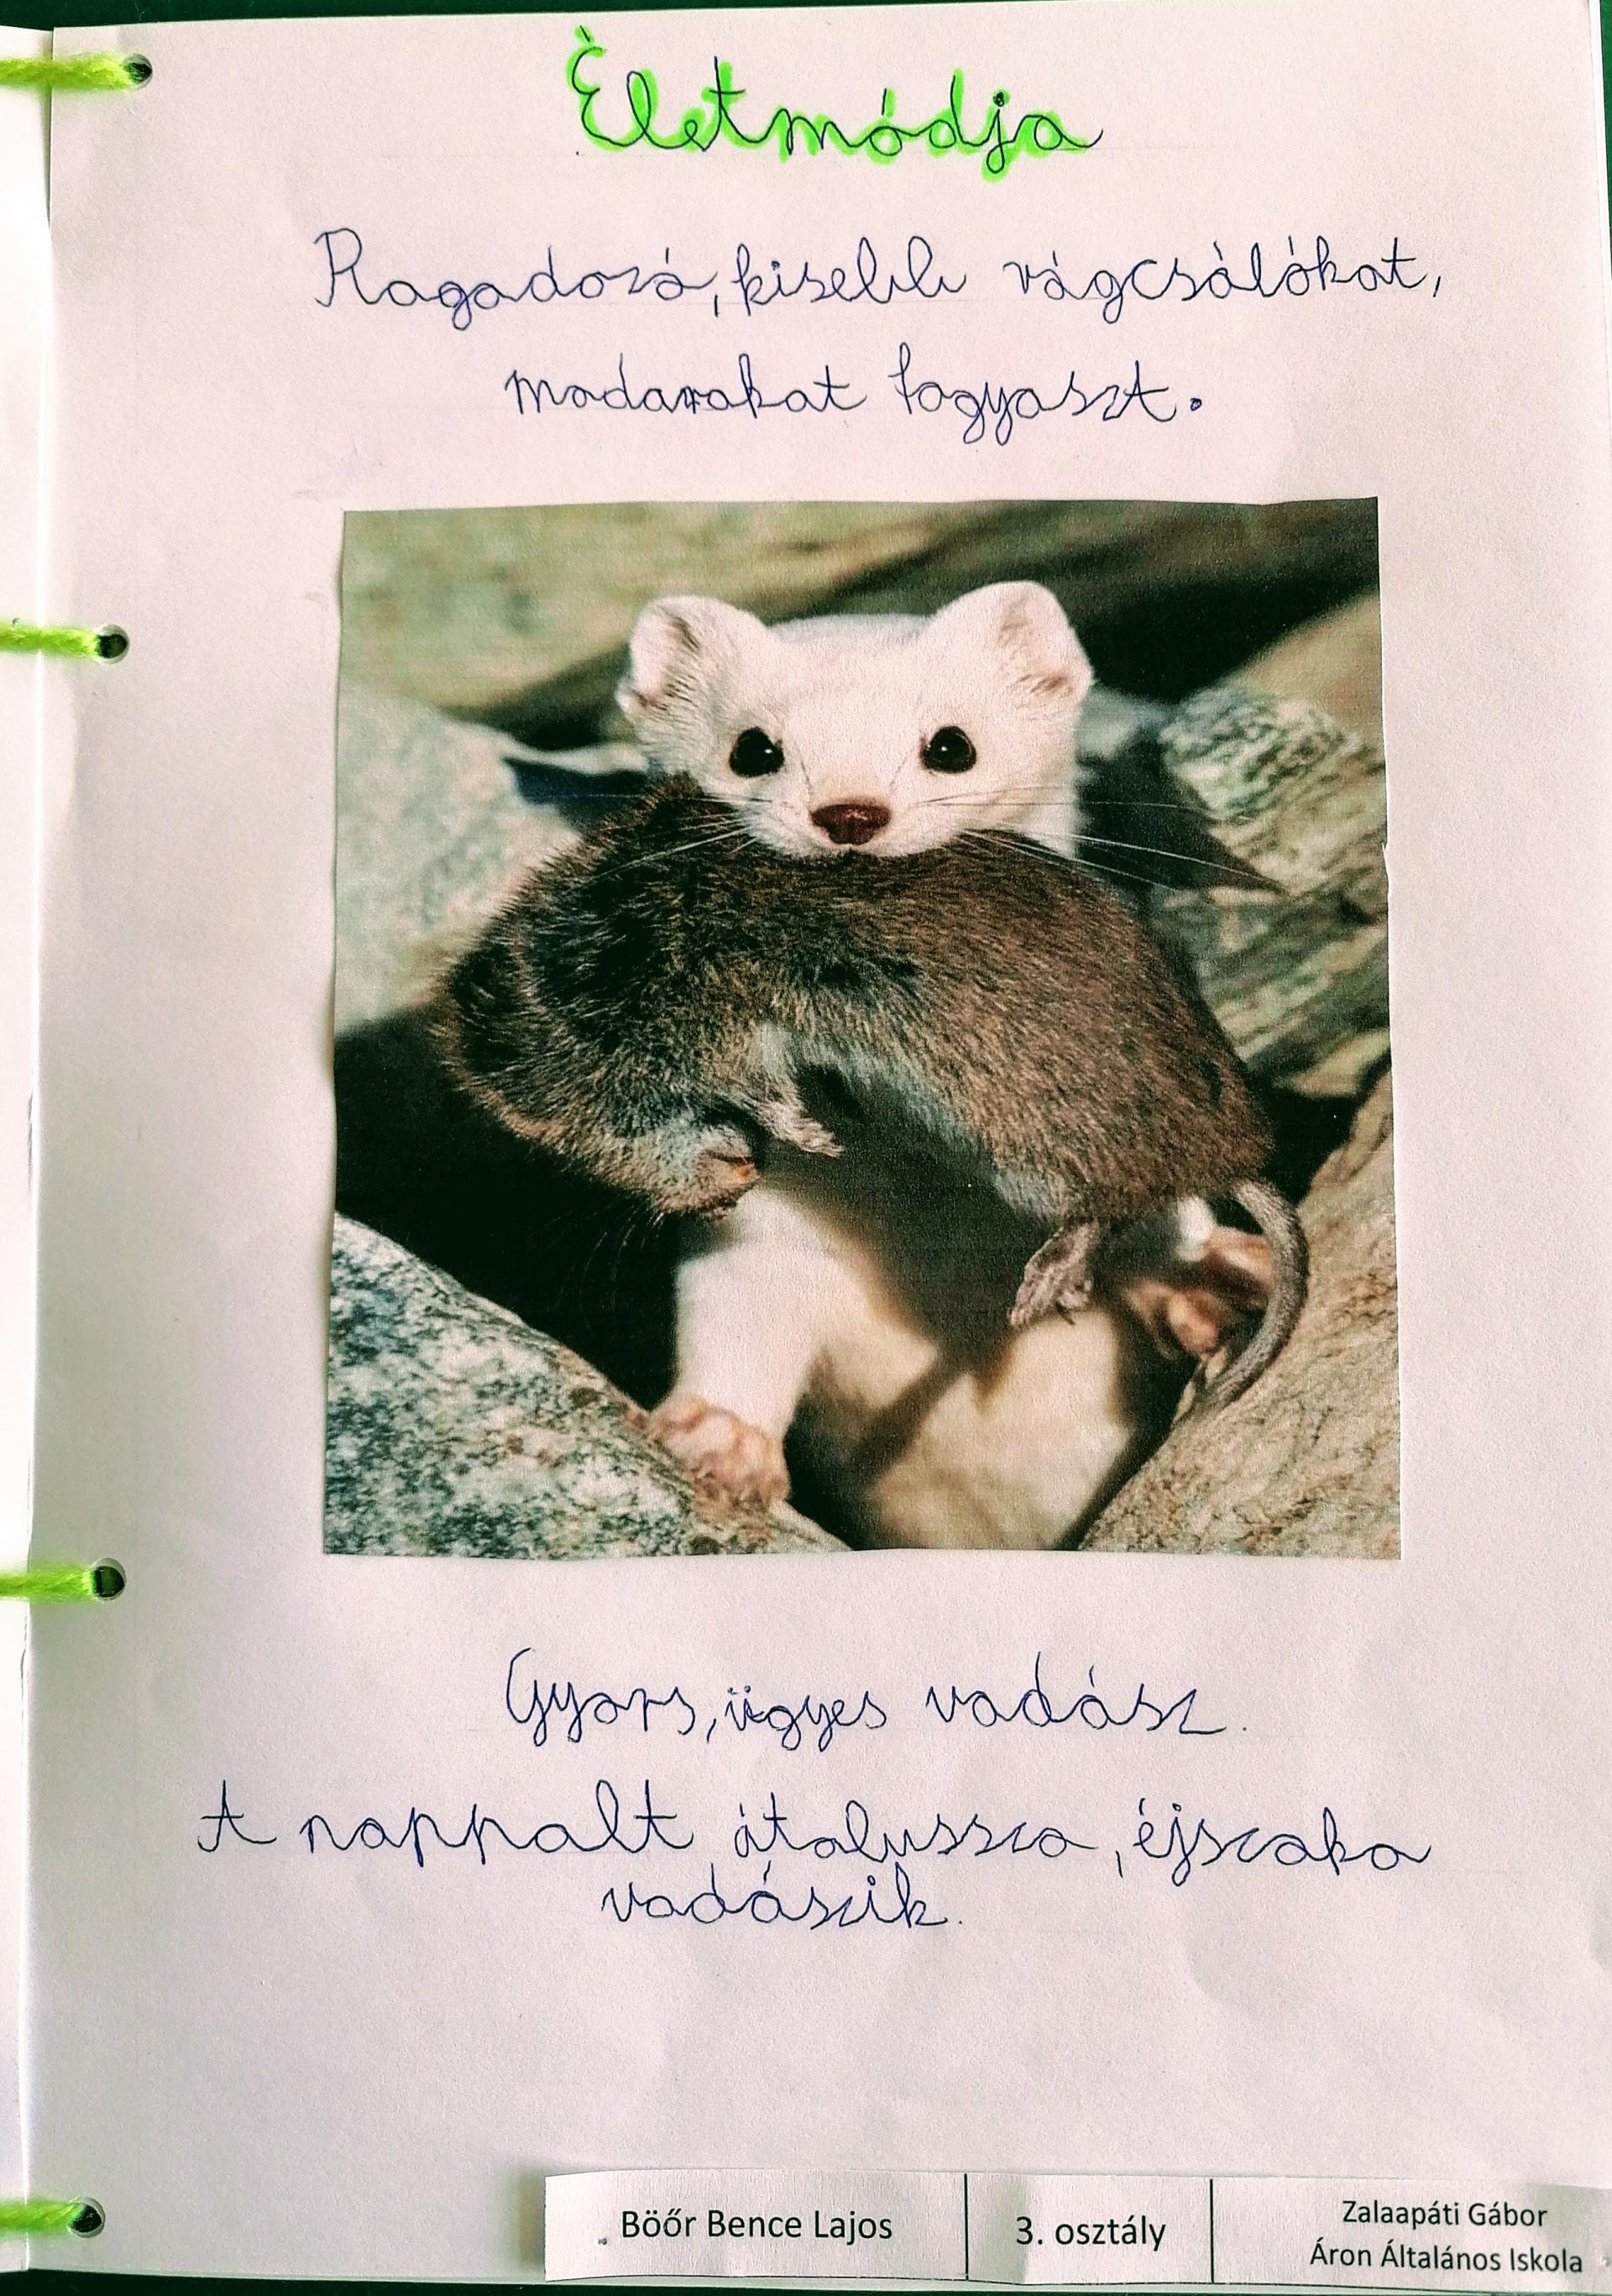 Életmódja
Ragadozó, kisebb rágcsálókat,
madarakat fogyaszt.
Gyors, ügyes vadász.
A nappalt átalussza, éjszaka
vadászik.
Böőr Bence Lajos
3. osztály
Zalaapáti Gábor
Áron Általános Iskola